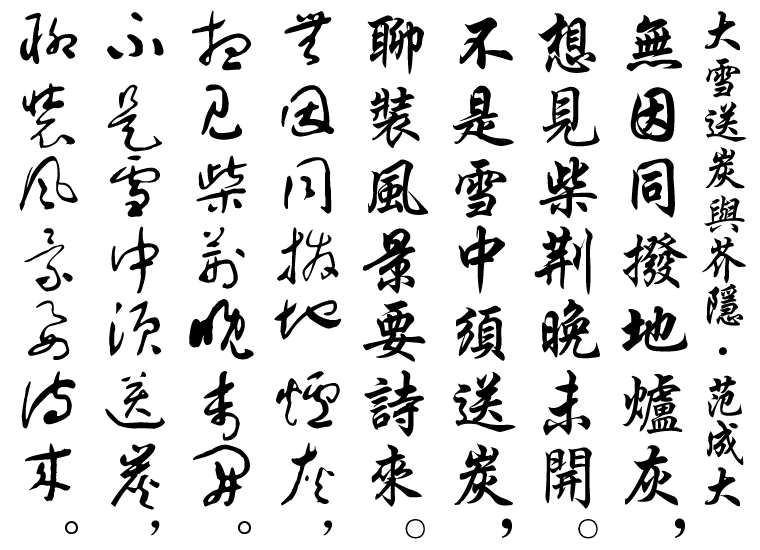 大雪送炭與芥隱·范成大
無因同撥地爐灰，
想見柴荆晚未開。
不是雪中須送炭，
聊裝風景要詩來。
無因同撥地爐灰，
想見柴荆晚未開。
不是雪中須送炭，
聊裝風景要詩來。